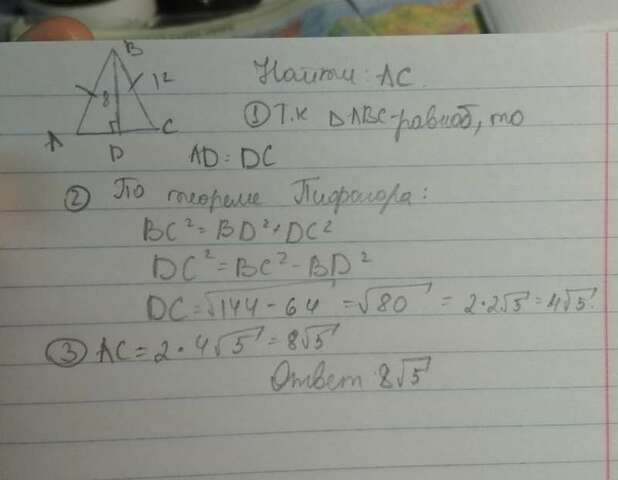 B
12
8
A
C
D
Найти: AC.
① Т.к △ABC-равноб, то
AD = DC
② По теореме Пифагора:
BC² = BD² + DC²
DC² = BC² - BD²
DC = √144 - 64 = √80 = 2·2√5 = 4√5.
③ AC = 2·4√5 = 8√5
Ответ 8√5